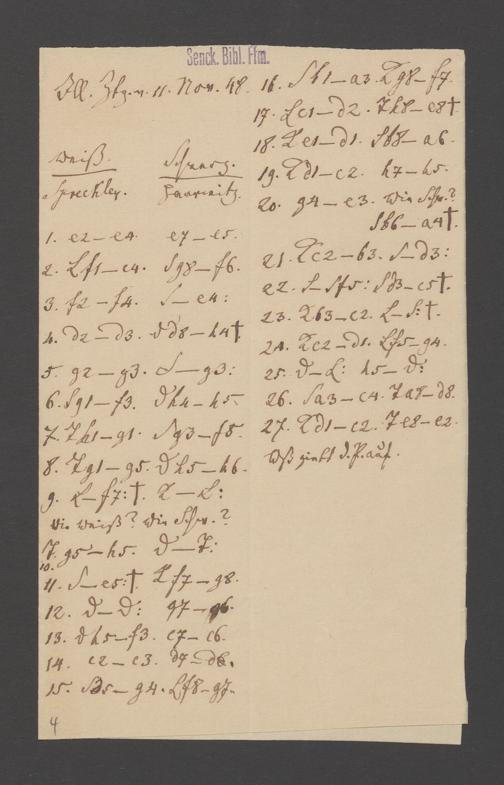 Senck. Bibl. Ffm.
Ill. Ztg. v. 11. Nov. 48.
Weiß. Schwarz.
Harrwitz.
1. e2–e4. e7–e5.
2. Lf1–c4. Sg8–f6.
3. f2–f4. S–e4:
4. d2–d3. Dd8–h4†
5. g2–g3. S–g3:
6. Sg1–f3. Dh4–h5
7. Th1–g1. Sg3–f5.
8. Tg1–g5. Dh5–h6.
9. L–f7:†. K–L:
Wie Weiß? Wie Schw.?
10. T. g5–h5. D–T:
11. S–e5:†. Kf7–g8.
12. D–D: g7–g6.
13. Dh5–f3. c7–c6.
14. c2–c3. d7–d6.
15. Se5–g4. Lf8–g7.
4
16. Sb1–a3. Kg8–f7.
17. Lc1–d2. Th8–e8†
18. Ke1–d1. Sb8–a6.
19. Kd1–c2. h7–h5.
20. g4–e3. Wie Schw.?
Sb6–a4†.
21. Kc2–b3. S–d3:
22. S–Sf5: Sd3–c5†.
23. Kb3–c2. L–S:†.
24. Kc2–d1. Lf5–g4.
25. D–L: h5–D:
26. Sa3–c4. Ta8–d8.
27. Kd1–c2. Te8–e2.
Wß giebt d. P. auf.